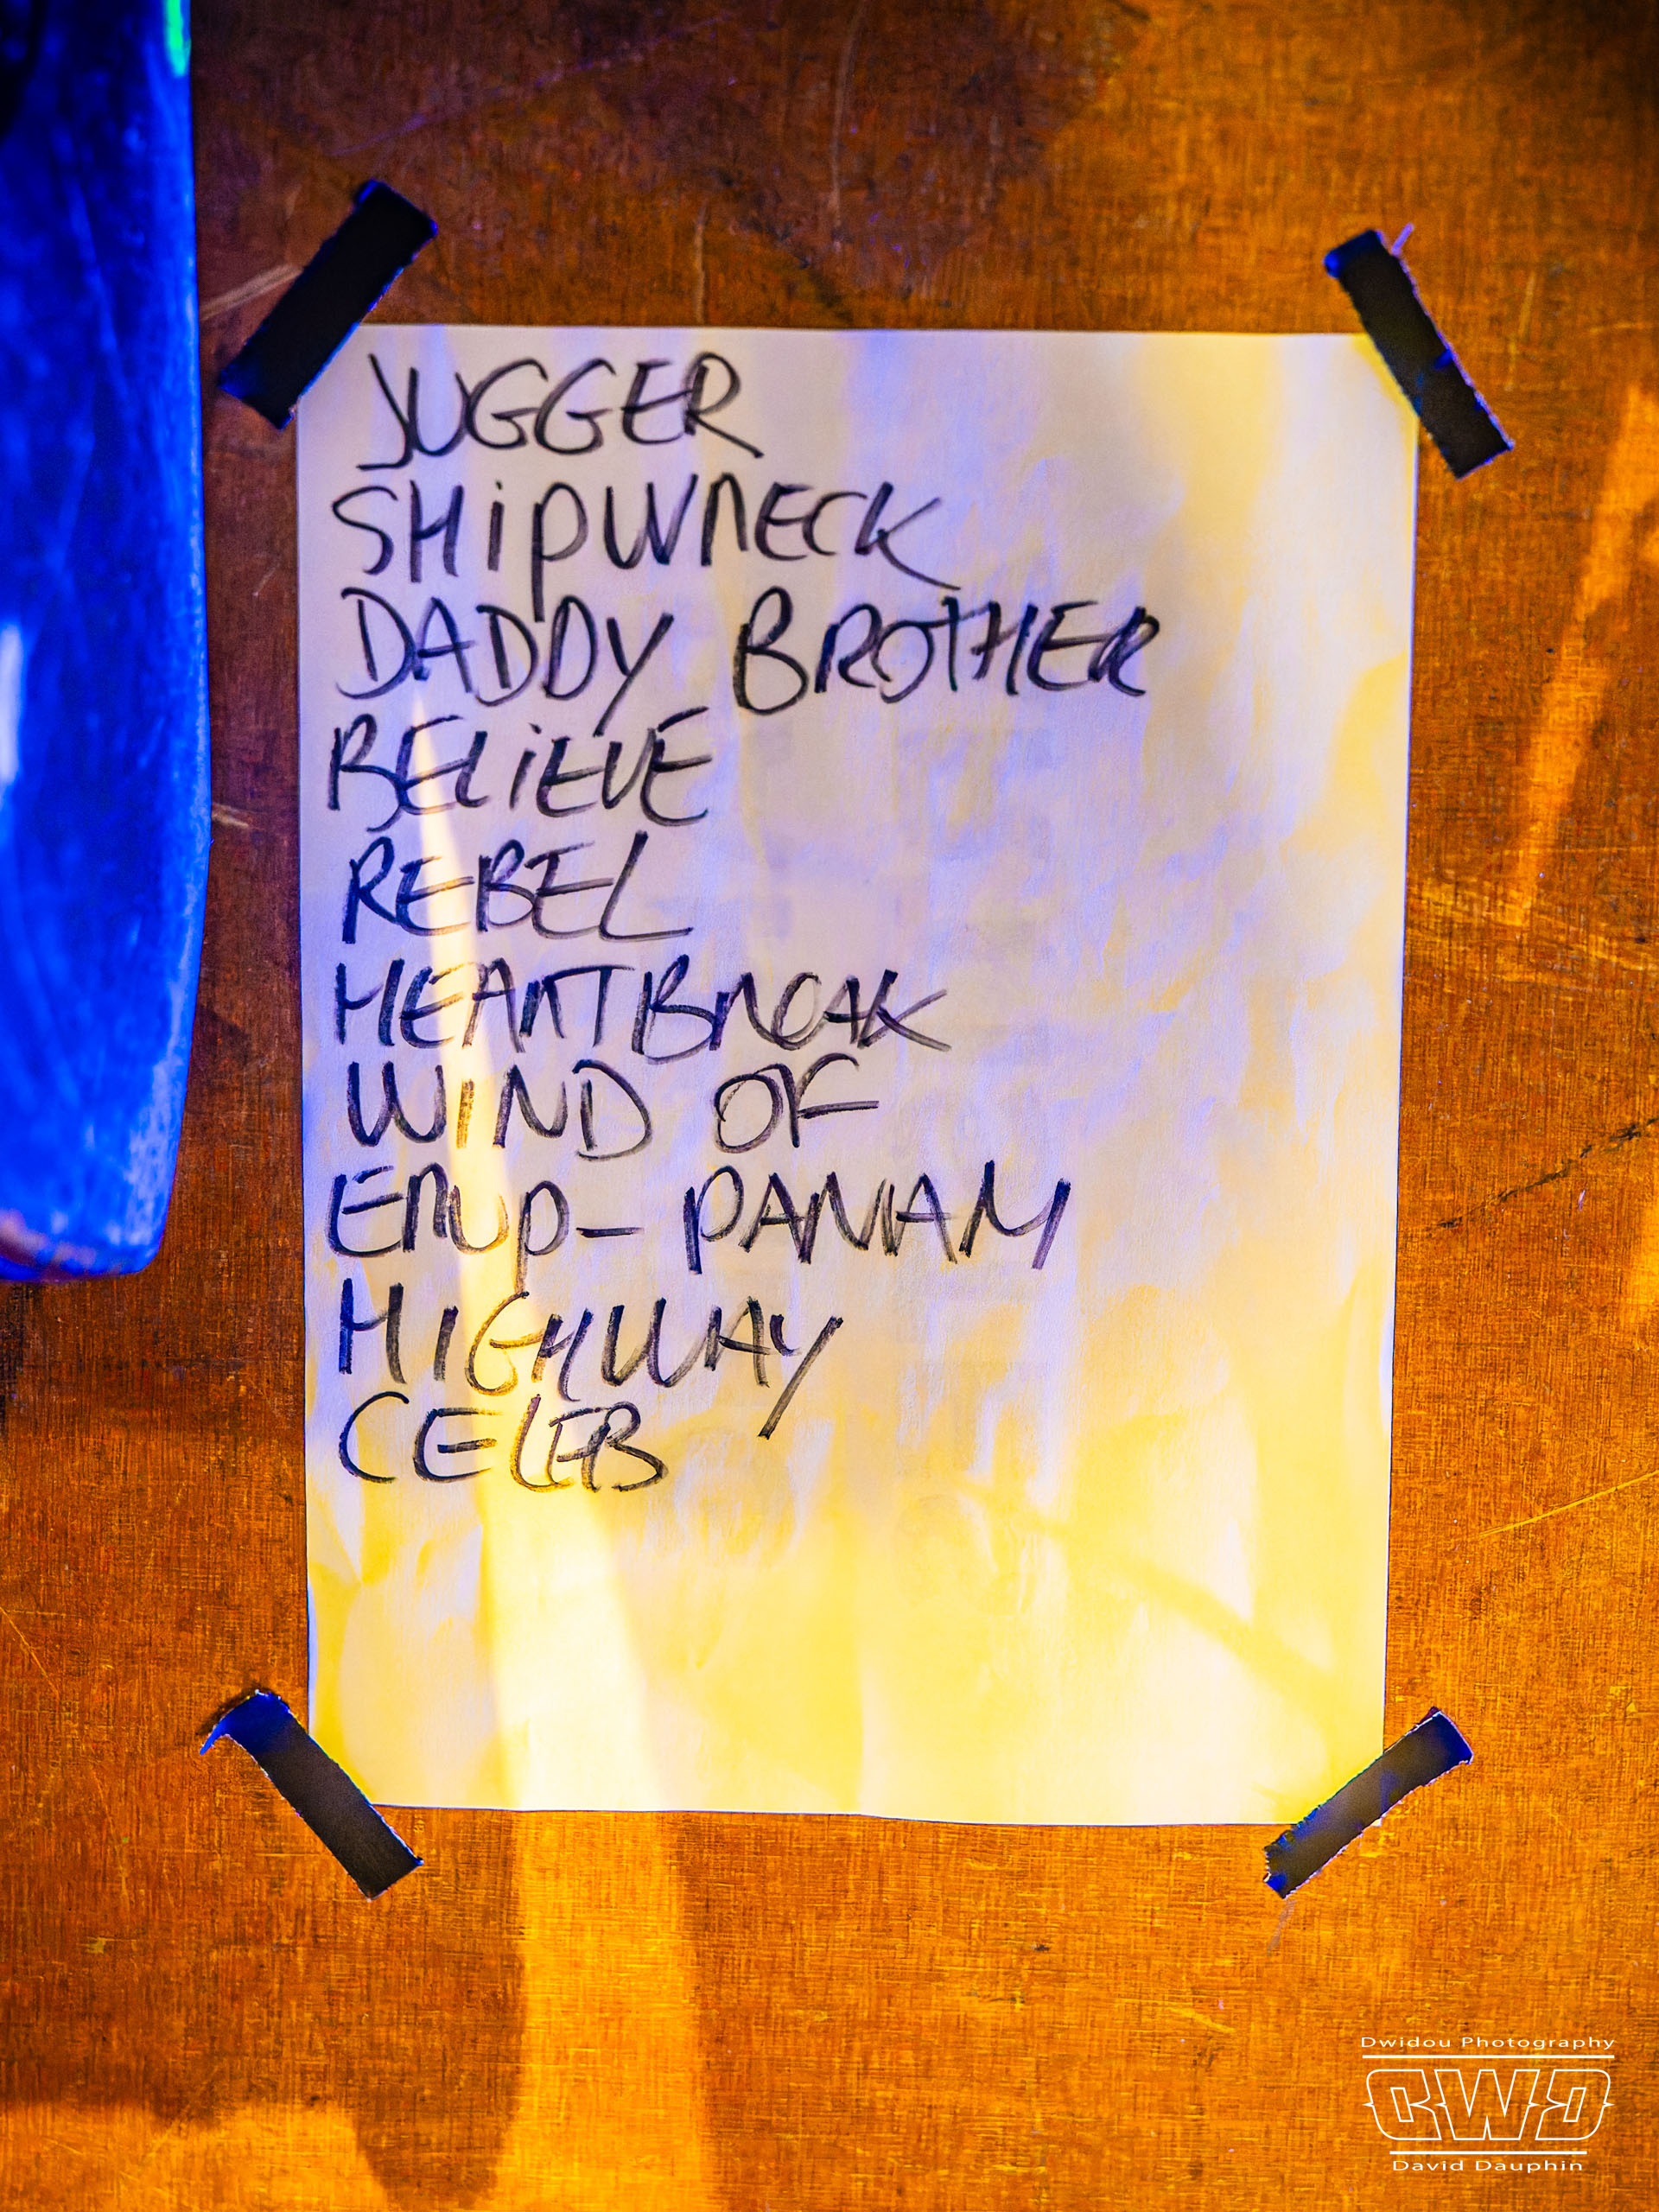 JUGGER
SHipWRECK
DADDY BROTHER
BELiEVE
REBEL
HEARTBREAK
WiND OF
ERUP - PANAM
HIGHWAY
CELEB
Dwidou Photography
DWD
David Dauphin